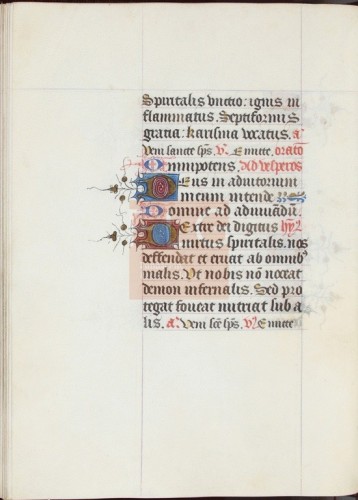 Spiritalis vnctio: ignis in
flammatus. Septiformis
gratia: karisma vocatus. a̓
Veni sancte sp̄s. v̓. Emitte, orato
Omnipotens, Ad vesperos
Deus in adiutorium
meum intende
Domine ad adiuuādū.
Dexter dei digitus
virtus spiritalis. nos
deffendat et eruat ab omnibꝰ
malis. Vt nobis nō noceat
demon infernalis. Sed pro
tegat foueat nutriat sub a
lis. a̓. Veni scē sp̄s. v̓. Emitte